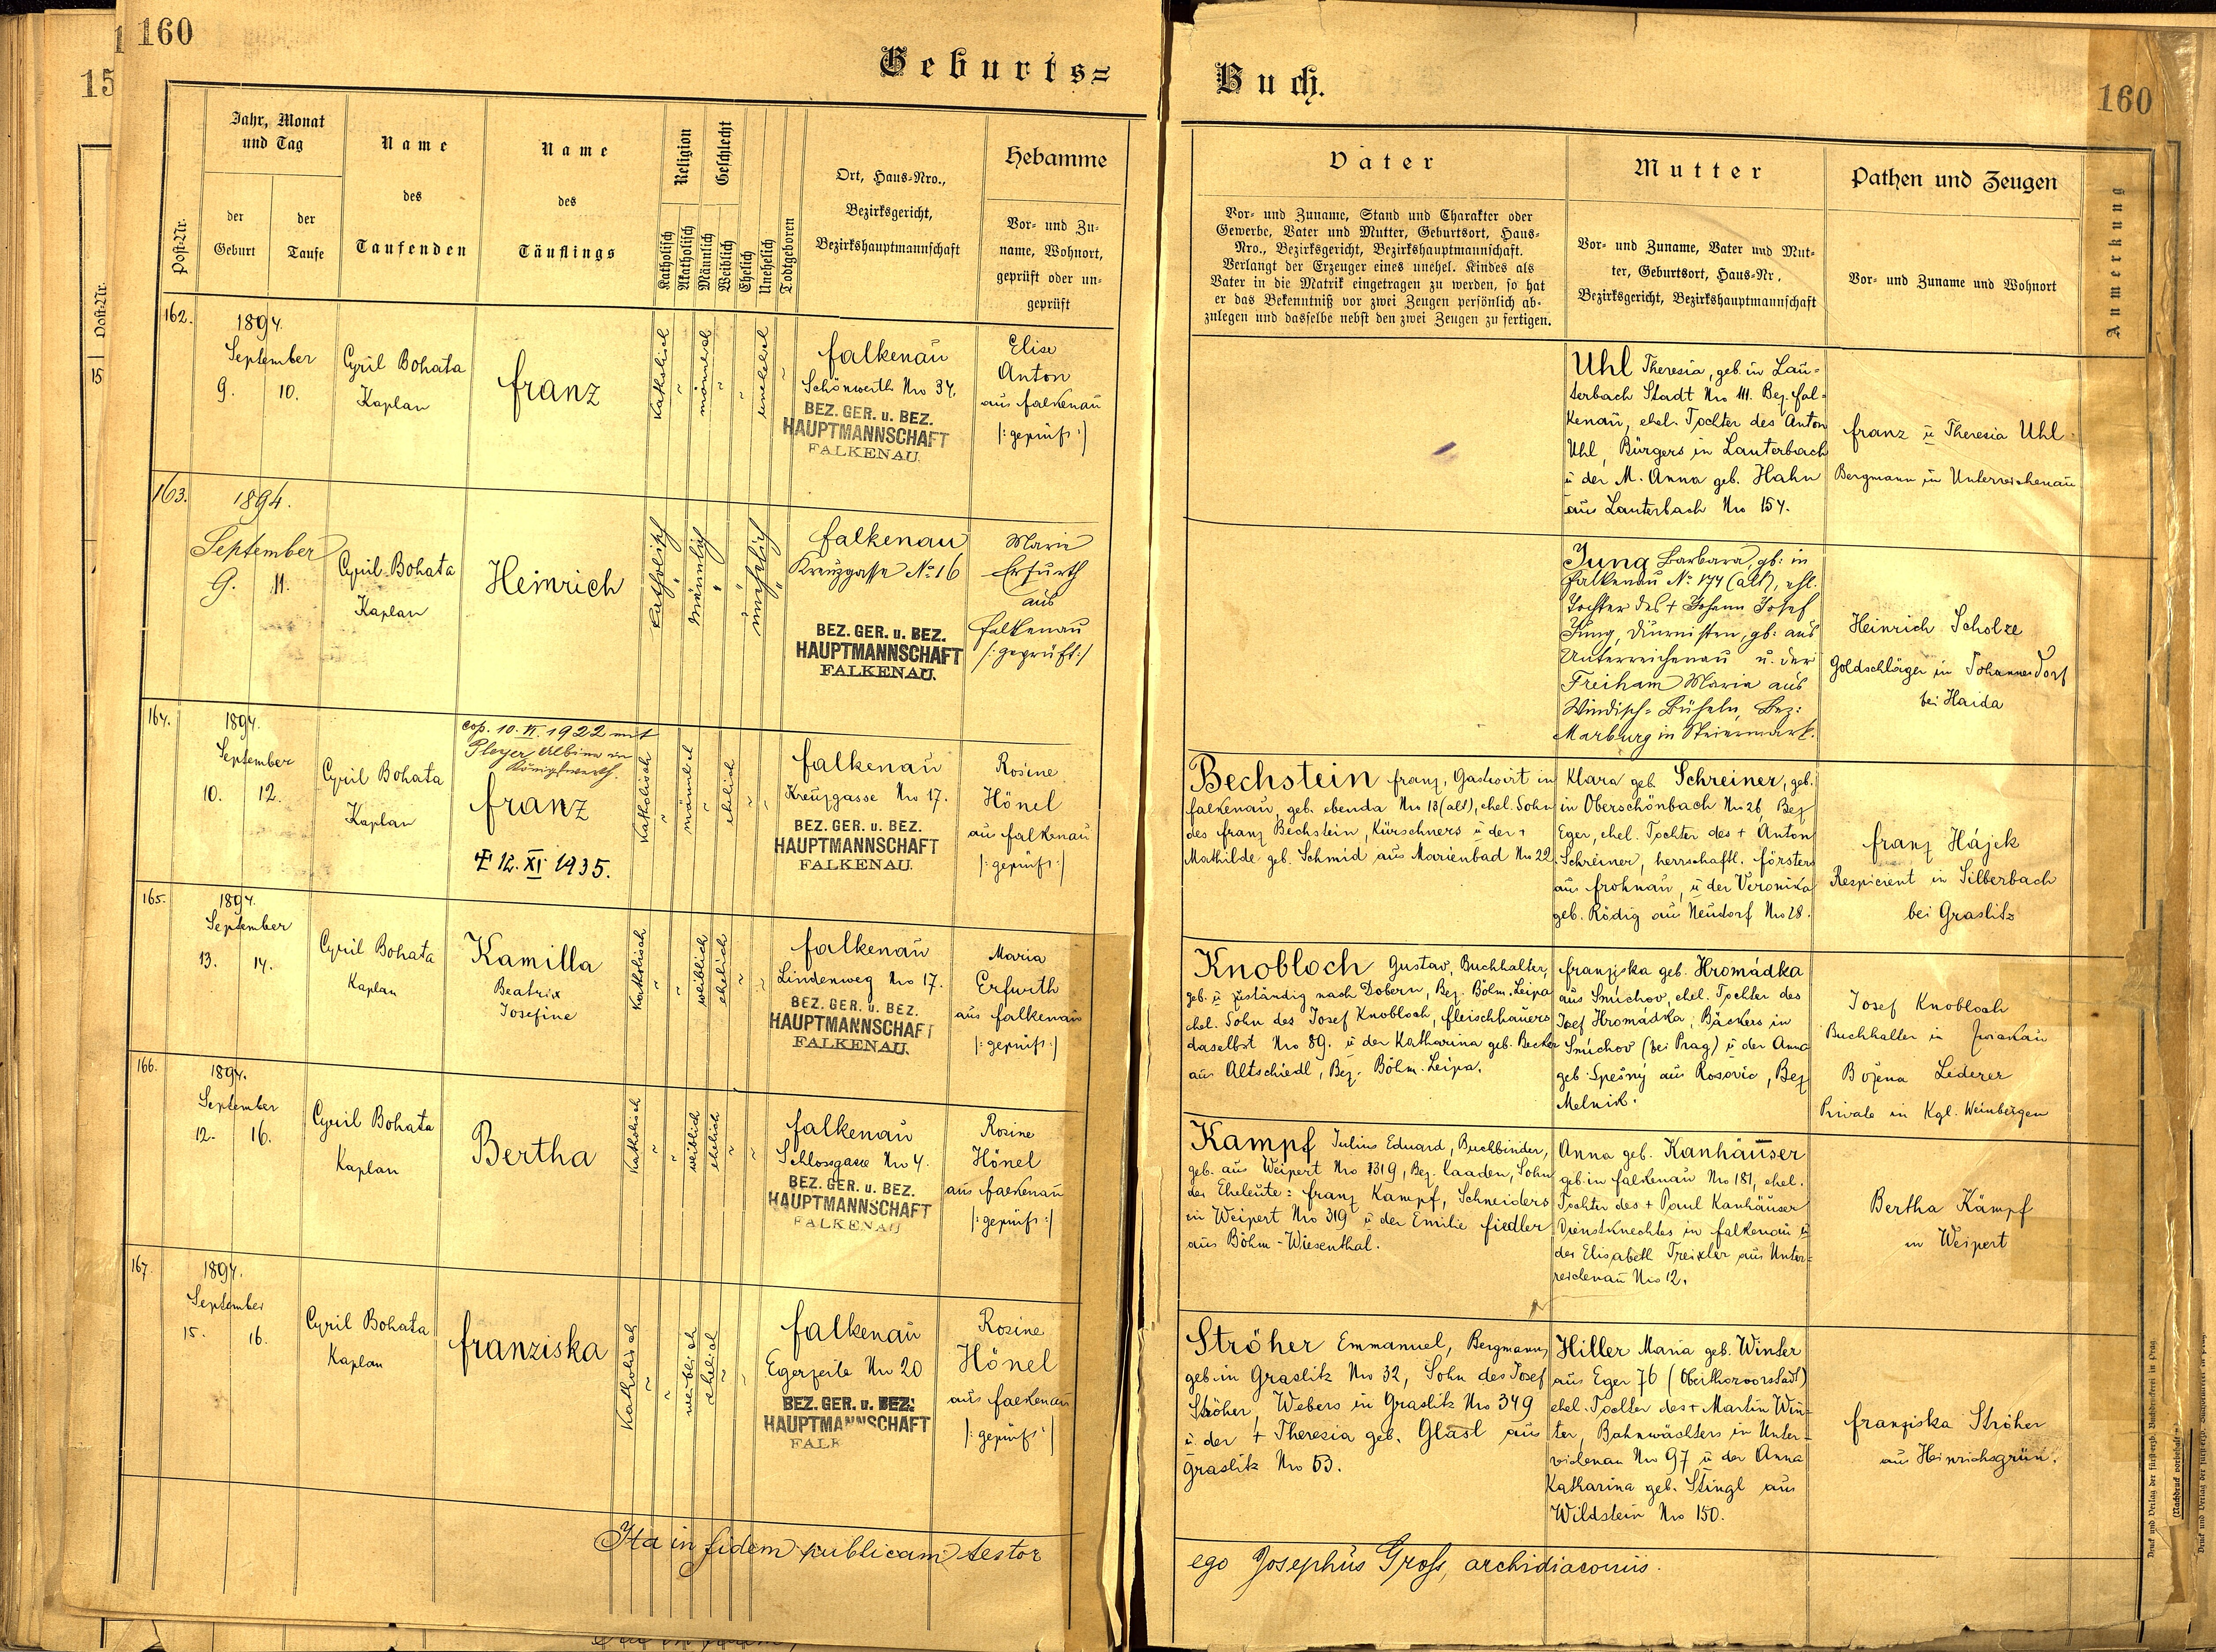 160
Geburts=
Jahr, Monat
und Tag
Name
des
Taufenden
Name
des
Täuflings
Religion
Geschlecht
Ort, Haus-Nro.,
Bezirksgericht,
Bezirkshauptmannschaft
Hebamme
Vor- und Zu-
name, Wohnort,
geprüft oder un-
geprüft
Post-Nr.
der
Geburt
der
Taufe
Katholisch
Akatholisch
Männlich
Weiblich
Ehelich
Unehelich
Todtgeboren
162.
1894.
September
9. 10.
Cyril Bohata
Kaplan
Franz
Katholisch
"
männlich
"
"
unehelich
"
Falkenau
Schönwerth Nro 34.
BEZ. GER. u. BEZ.
HAUPTMANNSCHAFT
FALKENAU.
Elise
Anton
aus Falkenau
/:geprüft:/
163.
1894.
September
9. 11.
Cyril Bohata
Kaplan
Heinrich
katholisch
"
männlich
"
"
unehelich
"
Falkenau
Kreuzgasse No 16
BEZ. GER. u. BEZ.
HAUPTMANNSCHAFT
FALKENAU.
Marie
Erfurth
aus
Falkenau
/:geprüft:/
164.
1894.
September
10. 12.
Cyril Bohata
Kaplan
cop. 10. VI. 1922 mit
Pleyer Albine in
Königswerth.
Franz
12. XI 1935.
Katholisch
"
männlich
"
ehelich
"
"
Falkenau
Kreuzgasse Nro 17.
BEZ. GER. u. BEZ.
HAUPTMANNSCHAFT
FALKENAU.
Rosine
Hönel
aus Falkenau
/:geprüft:/
165.
1894.
September
13. 14.
Cyril Bohata
Kaplan
Kamilla
Beatrix
Josefine
Katholisch
"
"
weiblich
ehelich
"
"
Falkenau
Lindenweg Nro 17.
BEZ. GER. u. BEZ.
HAUPTMANNSCHAFT
FALKENAU.
Maria
Erfurth
aus Falkenau
/:geprüft:/
166.
1894.
September
12. 16.
Cyril Bohata
Kaplan
Bertha
Katholisch
"
"
weiblich
ehelich
"
"
Falkenau
Schlossgasse Nro 4.
BEZ. GER. u. BEZ.
HAUPTMANNSCHAFT
FALKENAU
Rosine
Hönel
aus Falkenau
/:geprüft:/
167.
1894.
September
15. 16.
Cyril Bohata
Kaplan
Franziska
Katholisch
"
"
weiblich
ehelich
"
"
Falkenau
Egerzeile Nro 20
BEZ. GER. u. BEZ.
HAUPTMANNSCHAFT
FALK
Rosine
Hönel
aus Falkenau
/:geprüft:/
Ita in fidem publicam testor
Buch.
160
Vater
Vor- und Zuname, Stand und Charakter oder
Gewerbe, Vater und Mutter, Geburtsort, Haus-
Nro., Bezirksgericht, Bezirkshauptmannschaft.
Verlangt der Erzeuger eines unehel. Kindes als
Vater in die Matrik eingetragen zu werden, so hat
er das Bekenntniß vor zwei Zeugen persönlich ab-
zulegen und dasselbe nebst den zwei Zeugen zu fertigen.
Mutter
Vor- und Zuname, Vater und Mut-
ter, Geburtsort, Haus-Nr.
Bezirksgericht, Bezirkshauptmannschaft
Pathen und Zeugen
Vor- und Zuname und Wohnort
Anmerkung
Uhl Theresia, geb. in Lau=
terbach Stadt Nro 111. Bez. Fal=
kenau, ehel. Tochter des Anton
Uhl, Bürgers in Lauterbach
u der M. Anna geb. Hahn
aus Lauterbach Nro 154.
Franz u Theresia Uhl
Bergmann in Unterreichenau
Jung Barbara, gb: in
Falkenau No 174 (alt), ehl.
Tochter des + Johann Josef
Jung, Diurnisten, gb: aus
Unterreichenau u. der
Freiham Maria aus
Windisch-Büheln, Bez:
Marburg in Steiermark.
Heinrich Scholze
Goldschläger in Johannesdorf
bei Haida
Bechstein Franz, Gastwirt in
Falkenau, geb. ebenda Nro 13 (alt), ehel. Sohn
des Franz Bechstein, Kürschners u der +
Mathilde geb. Schmid aus Marienbad Nro 22.
Klara geb. Schreiner, geb.
in Oberschönbach Nro 26, Bez
Eger, ehel. Tochter des + Anton
Schreiner, herrschaftl. Försters
aus Frohnau, u der Veronika
geb. Rödig aus Neudorf Nro 28.
Franz Hájek
Respicient in Silberbach
bei Graslitz
Knobloch Gustav, Buchhalter,
geb. u zuständig nach Dobern, Bez. Böhm. Leipa
ehel. Sohn des Josef Knobloch, Fleischhauers
daselbst Nro 89. u der Katharina geb. Becker
aus Altschiedl, Bez. Böhm. Leipa.
Franziska geb. Hromádka
aus Smíchov, ehel. Tochter des
Josef Hromádka, Bäckers in
Smíchov (bei Prag) u der Anna
geb. Spešný aus Rosovic, Bez
Melnik.
Josef Knobloch
Buchhalter in
Božena Lederer
Private in Kgl. Weinbergen
Kampf Julius Eduard, Buchbinder,
geb. aus Weipert Nro 1319, Bez. Kaaden, Sohn
der Eheleute: Franz Kampf, Schneiders
in Weipert Nro 319 u der Emilie Fiedler
aus Böhm-Wiesenthal.
Anna geb. Kanhäuser
geb. in Falkenau Nro 181, ehel.
Tochter des + Paul Kanhäuser
Dienstknechtes in Falkenau u
der Elisabeth Treixler aus Unter=
reichenau Nro 12.
Bertha Kämpf
in Weipert
Ströher Emmanuel, Bergmann,
geb in Graslitz Nro 32, Sohn des Josef
Ströher, Webers in Graslitz Nro 349
u. der + Theresia geb. Glassl aus
Graslitz Nro 53.
Hiller Maria geb. Winter
aus Eger 76 (Oberthorvorstadt)
ehel. Tochter des + Martin Win=
ter, Bahnwächters in Unter=
reichenau Nro 97 u der Anna
Katharina geb. Stingl aus
Wildstein Nro 150.
Franziska Ströher
aus Heinrichsgrün.
ego Josephus Groß, archidiaconus.
Druck und Verlag der fürsterzb. Buchdruckerei in Prag.
(Nachdruck vorbehalten.)
15
Post-Nr.